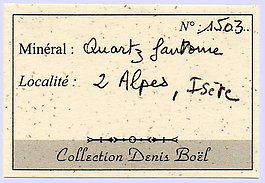 N° 1503
Minéral : Quartz fantome
Localité : 2 Alpes, Isère
Collection Denis Boël